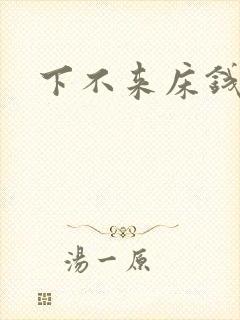 下不来床钱
湯一原